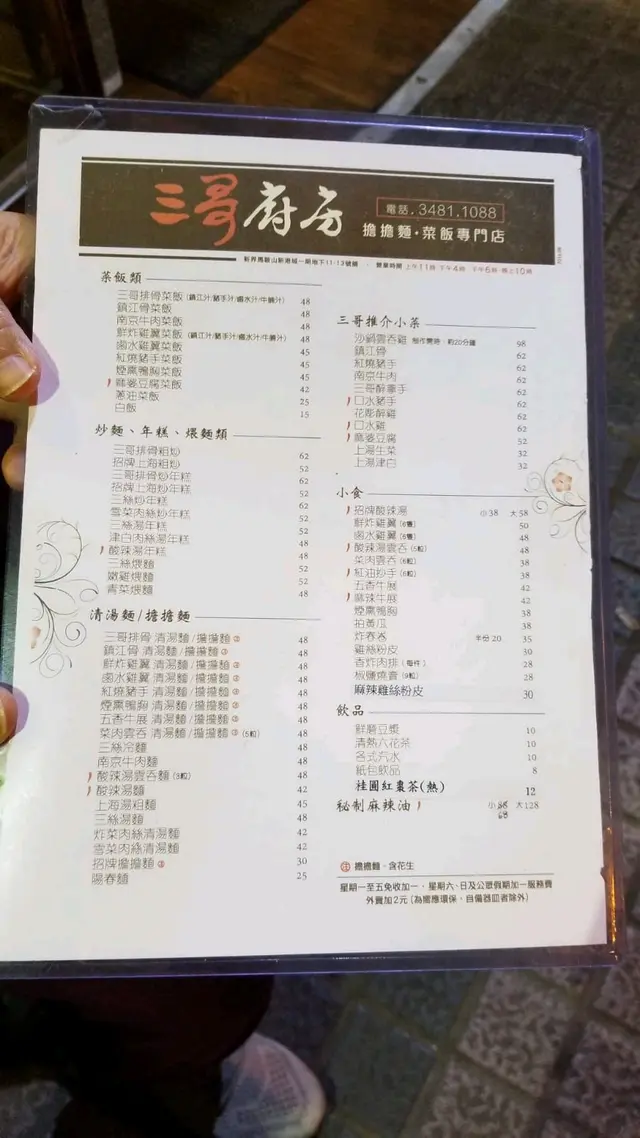 三哥廚房
電話.3481.1088
擔擔麵·菜飯專門店
新界馬鞍山新港城一期地下11-13號舖 · 營業時間 上午11時-下午4時 下午6時-晚上10時
菜飯類
三哥排骨菜飯 (鎮江汁/豬手汁/鹵水汁/牛腩汁) 48
鎮江骨菜飯 48
南京牛肉菜飯 48
鮮炸雞翼菜飯 (鎮江汁/豬手汁/鹵水汁/牛腩汁) 48
鹵水雞翼菜飯 45
紅燒豬手菜飯 45
煙熏鴨胸菜飯 45
麻婆豆腐菜飯 42
蔥油菜飯 25
白飯 15
炒麵、年糕、煨麵類
三哥排骨粗炒 62
招牌上海粗炒 52
三哥排骨炒年糕 62
招牌上海炒年糕 52
三絲炒年糕 62
雪菜肉絲炒年糕 52
三絲湯年糕 52
津白肉絲湯年糕 48
酸辣湯年糕 48
三絲煨麵 52
嫩雞煨麵 52
青菜煨麵 48
清湯麵/擔擔麵
三哥排骨 清湯麵/擔擔麵 48
鎮江骨 清湯麵/擔擔麵 48
鮮炸雞翼 清湯麵/擔擔麵 48
鹵水雞翼 清湯麵/擔擔麵 48
紅燒豬手 清湯麵/擔擔麵 48
煙熏鴨胸 清湯麵/擔擔麵 48
五香牛展 清湯麵/擔擔麵 48
菜肉雲吞 清湯麵/擔擔麵 (5粒) 48
三絲冷麵 48
南京牛肉麵 48
酸辣湯雲吞麵 48
酸辣湯麵 42
上海湯粗麵 45
三絲湯麵 48
炸菜肉絲清湯麵 42
雪菜肉絲清湯麵 42
招牌擔擔麵 30
陽春麵 25
三哥推介小菜
沙鍋雲吞雞 每作需時:約20分鐘 98
鎮江骨 62
紅燒豬手 62
南京牛肉 62
三哥醉豬手 62
口水豬手 62
花彫醉雞 62
口水雞 62
麻婆豆腐 52
上湯生菜 32
上湯津白 32
小食
招牌酸辣湯 小38 大58
鮮炸雞翼 (6隻) 50
鹵水雞翼 (6隻) 48
酸辣湯雲吞 (5粒) 48
菜肉雲吞 (6粒) 38
紅油抄手 (6粒) 38
五香牛展 42
麻辣牛展 42
煙熏鴨胸 38
拍黃瓜 38
炸春卷 半份20 35
雞絲粉皮 30
香炸肉排 (每件) 28
椒鹽燒賣 (9粒) 28
麻辣雞絲粉皮 30
飲品
鮮磨豆漿 10
清熱六花茶 10
各式汽水 10
紙包飲品 8
桂圓紅棗茶(熱) 12
秘制麻辣油 小88 大128
68
擔擔麵-含花生
星期一至五免收加一,星期六、日及公眾假期加一服務費
外賣加2元 (為響應環保,自備器皿者除外)